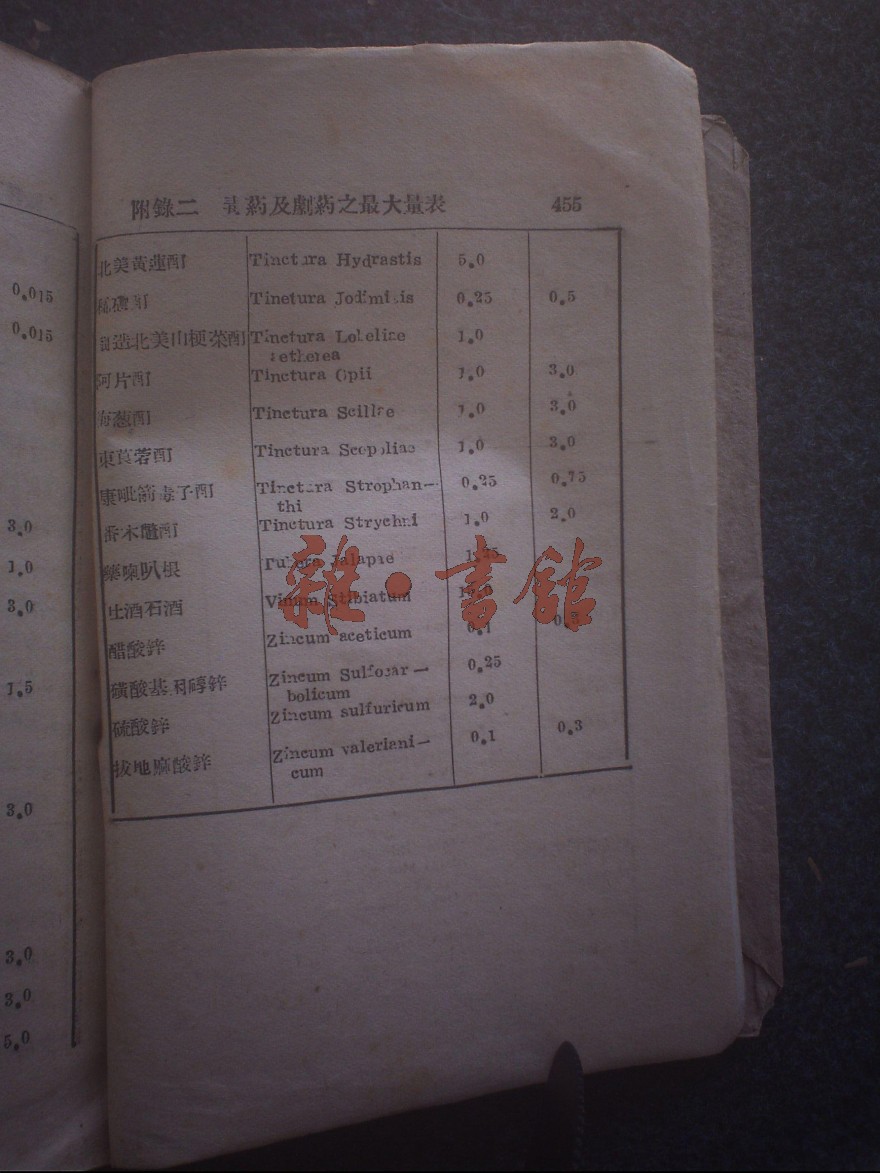 附錄二 毒葯及劇葯之最大量表 455
北美黃蓮酊 Tinctura Hydrastis 5.0
Tinetura Jodi 0.25 0.5
製造北美山梗菜酊 Tinctura Lobeliae 1.0
aetherea
阿片酊 Tinctura Opii 1.0 3.0
海葱酊 Tinctura Scillae 1.0 3.0
東莨菪酊 Tinctura Scopoliae 1.0 3.0
康毗箭毒子酊 Tinctura Strophan— 0.25 0.75
thi
番木鼈酊 Tinctura Strychni 1.0 2.0
藥喇叭根 Tubera Jalapae 1.25
吐酒石酒 Vinum Stibiatum 15.0
醋酸鋅 Zincum aceticum 0.1
磺酸基 Zincum Sulfocar— 0.25
bolicum
硫酸鋅 Zincum sulfuricum 2.0
拔地麻酸鋅 Zincum valeriani— 0.1 0.3
cum
0.015
0.015
3.0
1.0
3.0
1.5
3.0
3.0
3.0
5.0
雜·書館